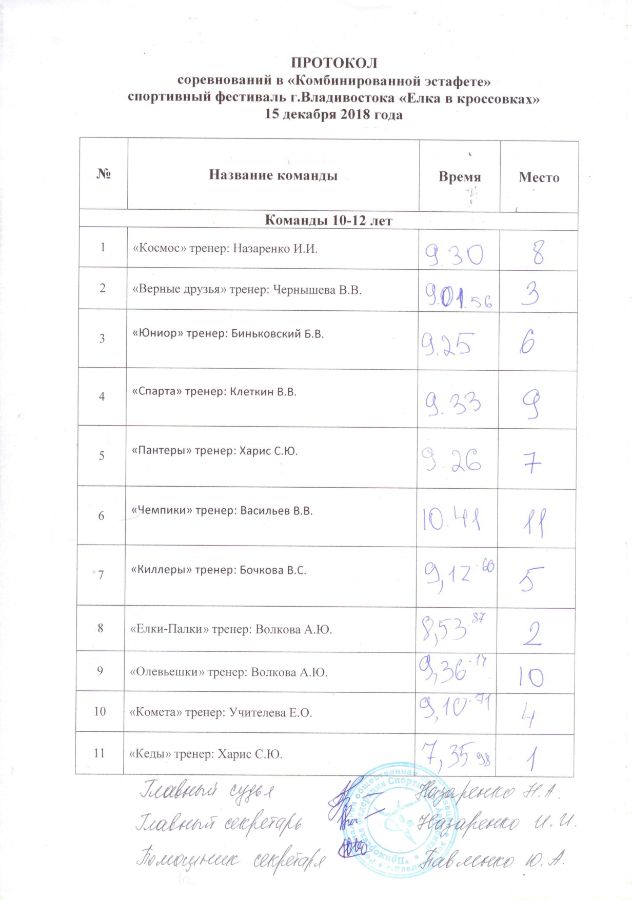 ПРОТОКОЛ
соревнований в «Комбинированной эстафете»
спортивный фестиваль г.Владивостока «Елка в кроссовках»
15 декабря 2018 года
№ Название команды Время Место
Команды 10-12 лет
1 «Космос» тренер: Назаренко И.И. 9.30 8
2 «Верные друзья» тренер: Чернышева В.В. 901.56 3
3 «Юниор» тренер: Биньковский Б.В. 9.25 6
4 «Спарта» тренер: Клеткин В.В. 9.33 9
5 «Пантеры» тренер: Харис С.Ю. 9.26 7
6 «Чемпики» тренер: Васильев В.В. 10.41 11
7 «Киллеры» тренер: Бочкова В.С. 9,12.60 5
8 «Елки-Палки» тренер: Волкова А.Ю. 8,53.87 2
9 «Олевьешки» тренер: Волкова А.Ю. 9,36.14 10
10 «Комета» тренер: Учителева Е.О. 9,10.71 4
11 «Кеды» тренер: Харис С.Ю. 7,35 98 1
Главный судья Назаренко Н.А.
Главный секретарь Назаренко И.И.
Помощник секретаря Павленко Ю.А.